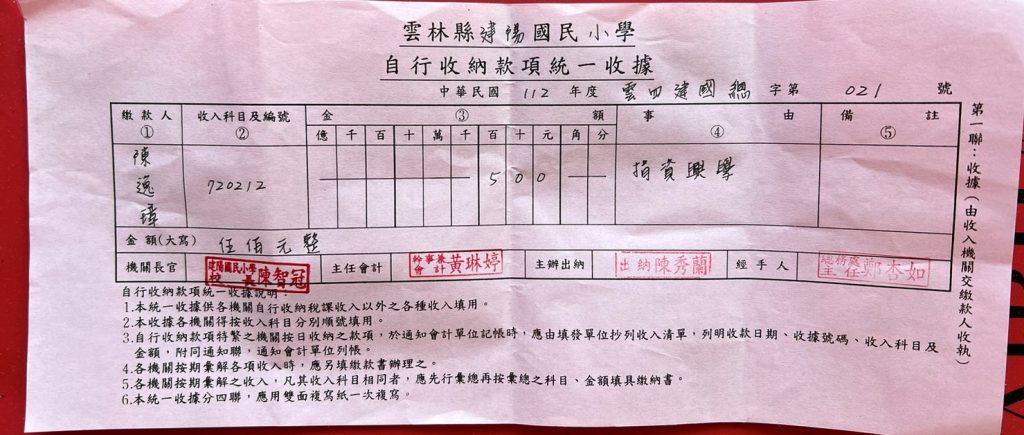 雲林縣建陽國民小學
自行收納款項統一收據
中華民國 112 年度 雲四建國總 字第 021 號
繳款人 ① 收入科目及編號 ② 金 ③ 額 事 ④ 由 備 ⑤ 註
億 千 百 十 萬 千 百 十 元 角 分
陳逸瑋 720212 500 捐資興學
金額(大寫) 伍佰元整
機關長官 建陽國民小學校長陳智冠 主任會計 幹事兼會計黃琳婷 主辦出納 出納陳秀蘭 經手人 總務處主任鄭杏如
第一聯：收據(由收入機關交繳款人收執)
自行收納款項統一收據說明：
1.本統一收據供各機關自行收納稅課收入以外之各種收入填用。
2.本收據各機關得按收入科目分別順號填用。
3.自行收納款項特繁之機關按日收納之款項，於通知會計單位記帳時，應由填發單位抄列收入清單，列明收款日期、收據號碼、收入科目及
金額，附同通知聯，通知會計單位列帳。
4.各機關按期彙解各項收入時，應另填繳款書辦理之。
5.各機關按期彙解之收入，凡其收入科目相同者，應先行彙總再按彙總之科目、金額填具繳納書。
6.本統一收據分四聯，應用雙面複寫紙一次複寫。